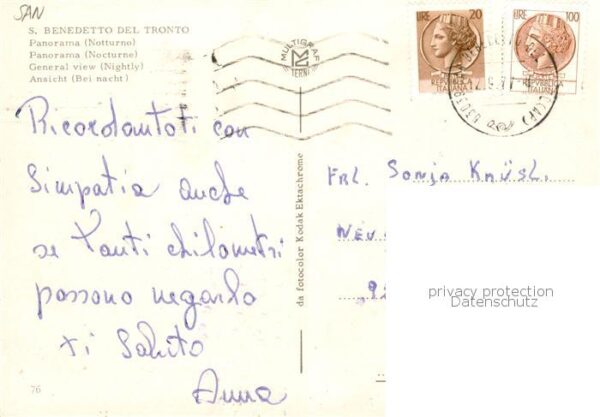 SAN
S. BENEDETTO DEL TRONTO
Panorama (Notturno)
Panorama (Nocturne)
General view (Nightly)
Ansicht (Bei nacht)
MULTIGRAF
TERNI
LIRE 20
REPUBBLICA
ITALIANA
LIRE 100
REPUBBLICA
ITALIANA
Ricordantoti con
simpatia anche
se tanti chilometri
possono negarlo
ti saluto
Anna
da fotocolor Kodak Ektachrome
FRL. Sonja Knüsl.
privacy protection
Datenschutz
76